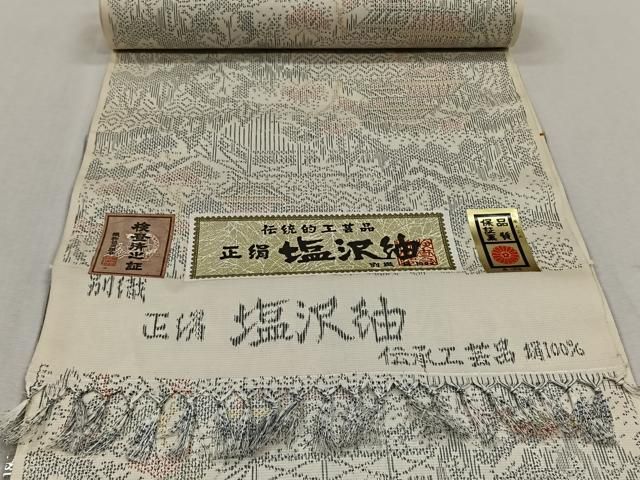 検査済之証
伝統的工芸品
正絹 塩沢紬
品質
保証
正絹 塩沢紬
伝承工芸品 絹100%